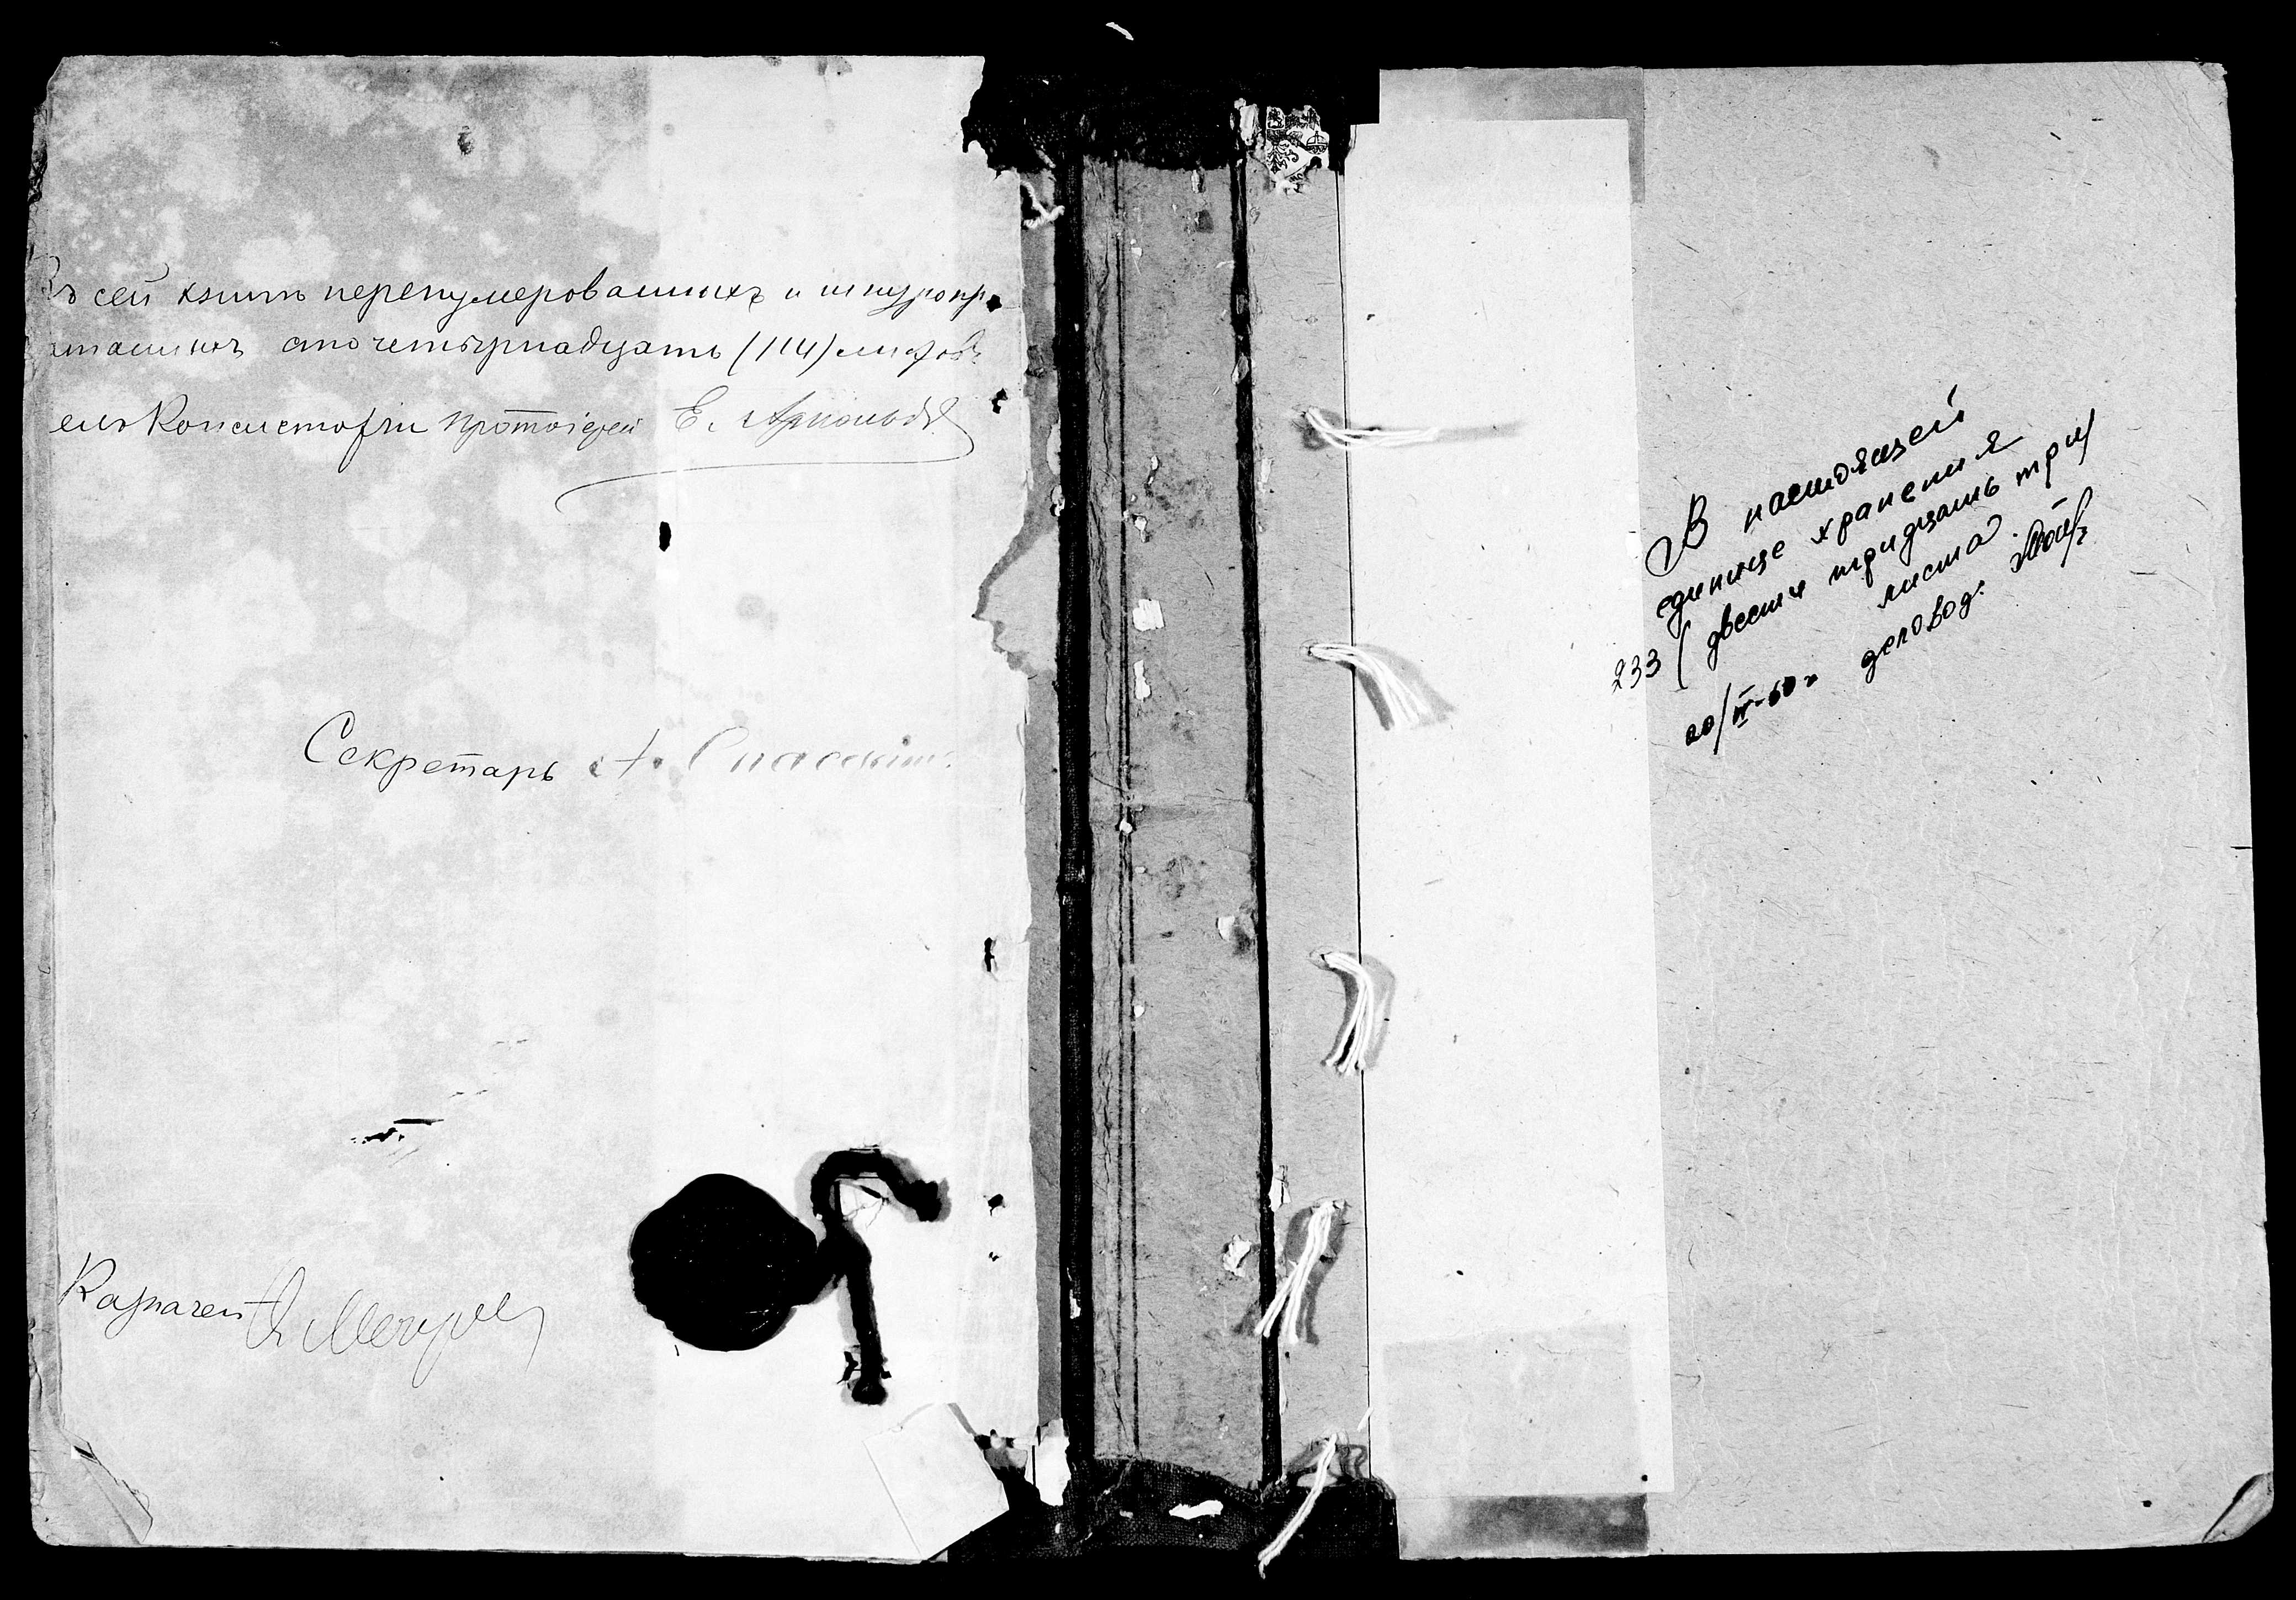 Въ сей книгѣ перенумерованныхъ и шнуропро
сто четырнадцать (114) листовъ
Консисторіи Протоіерей Е.
Секретарь А. Спасскій
Казначей
В настоящей
единице хранения
233 (двести тридцать три)
листа.
20/IV-60 г деловод.